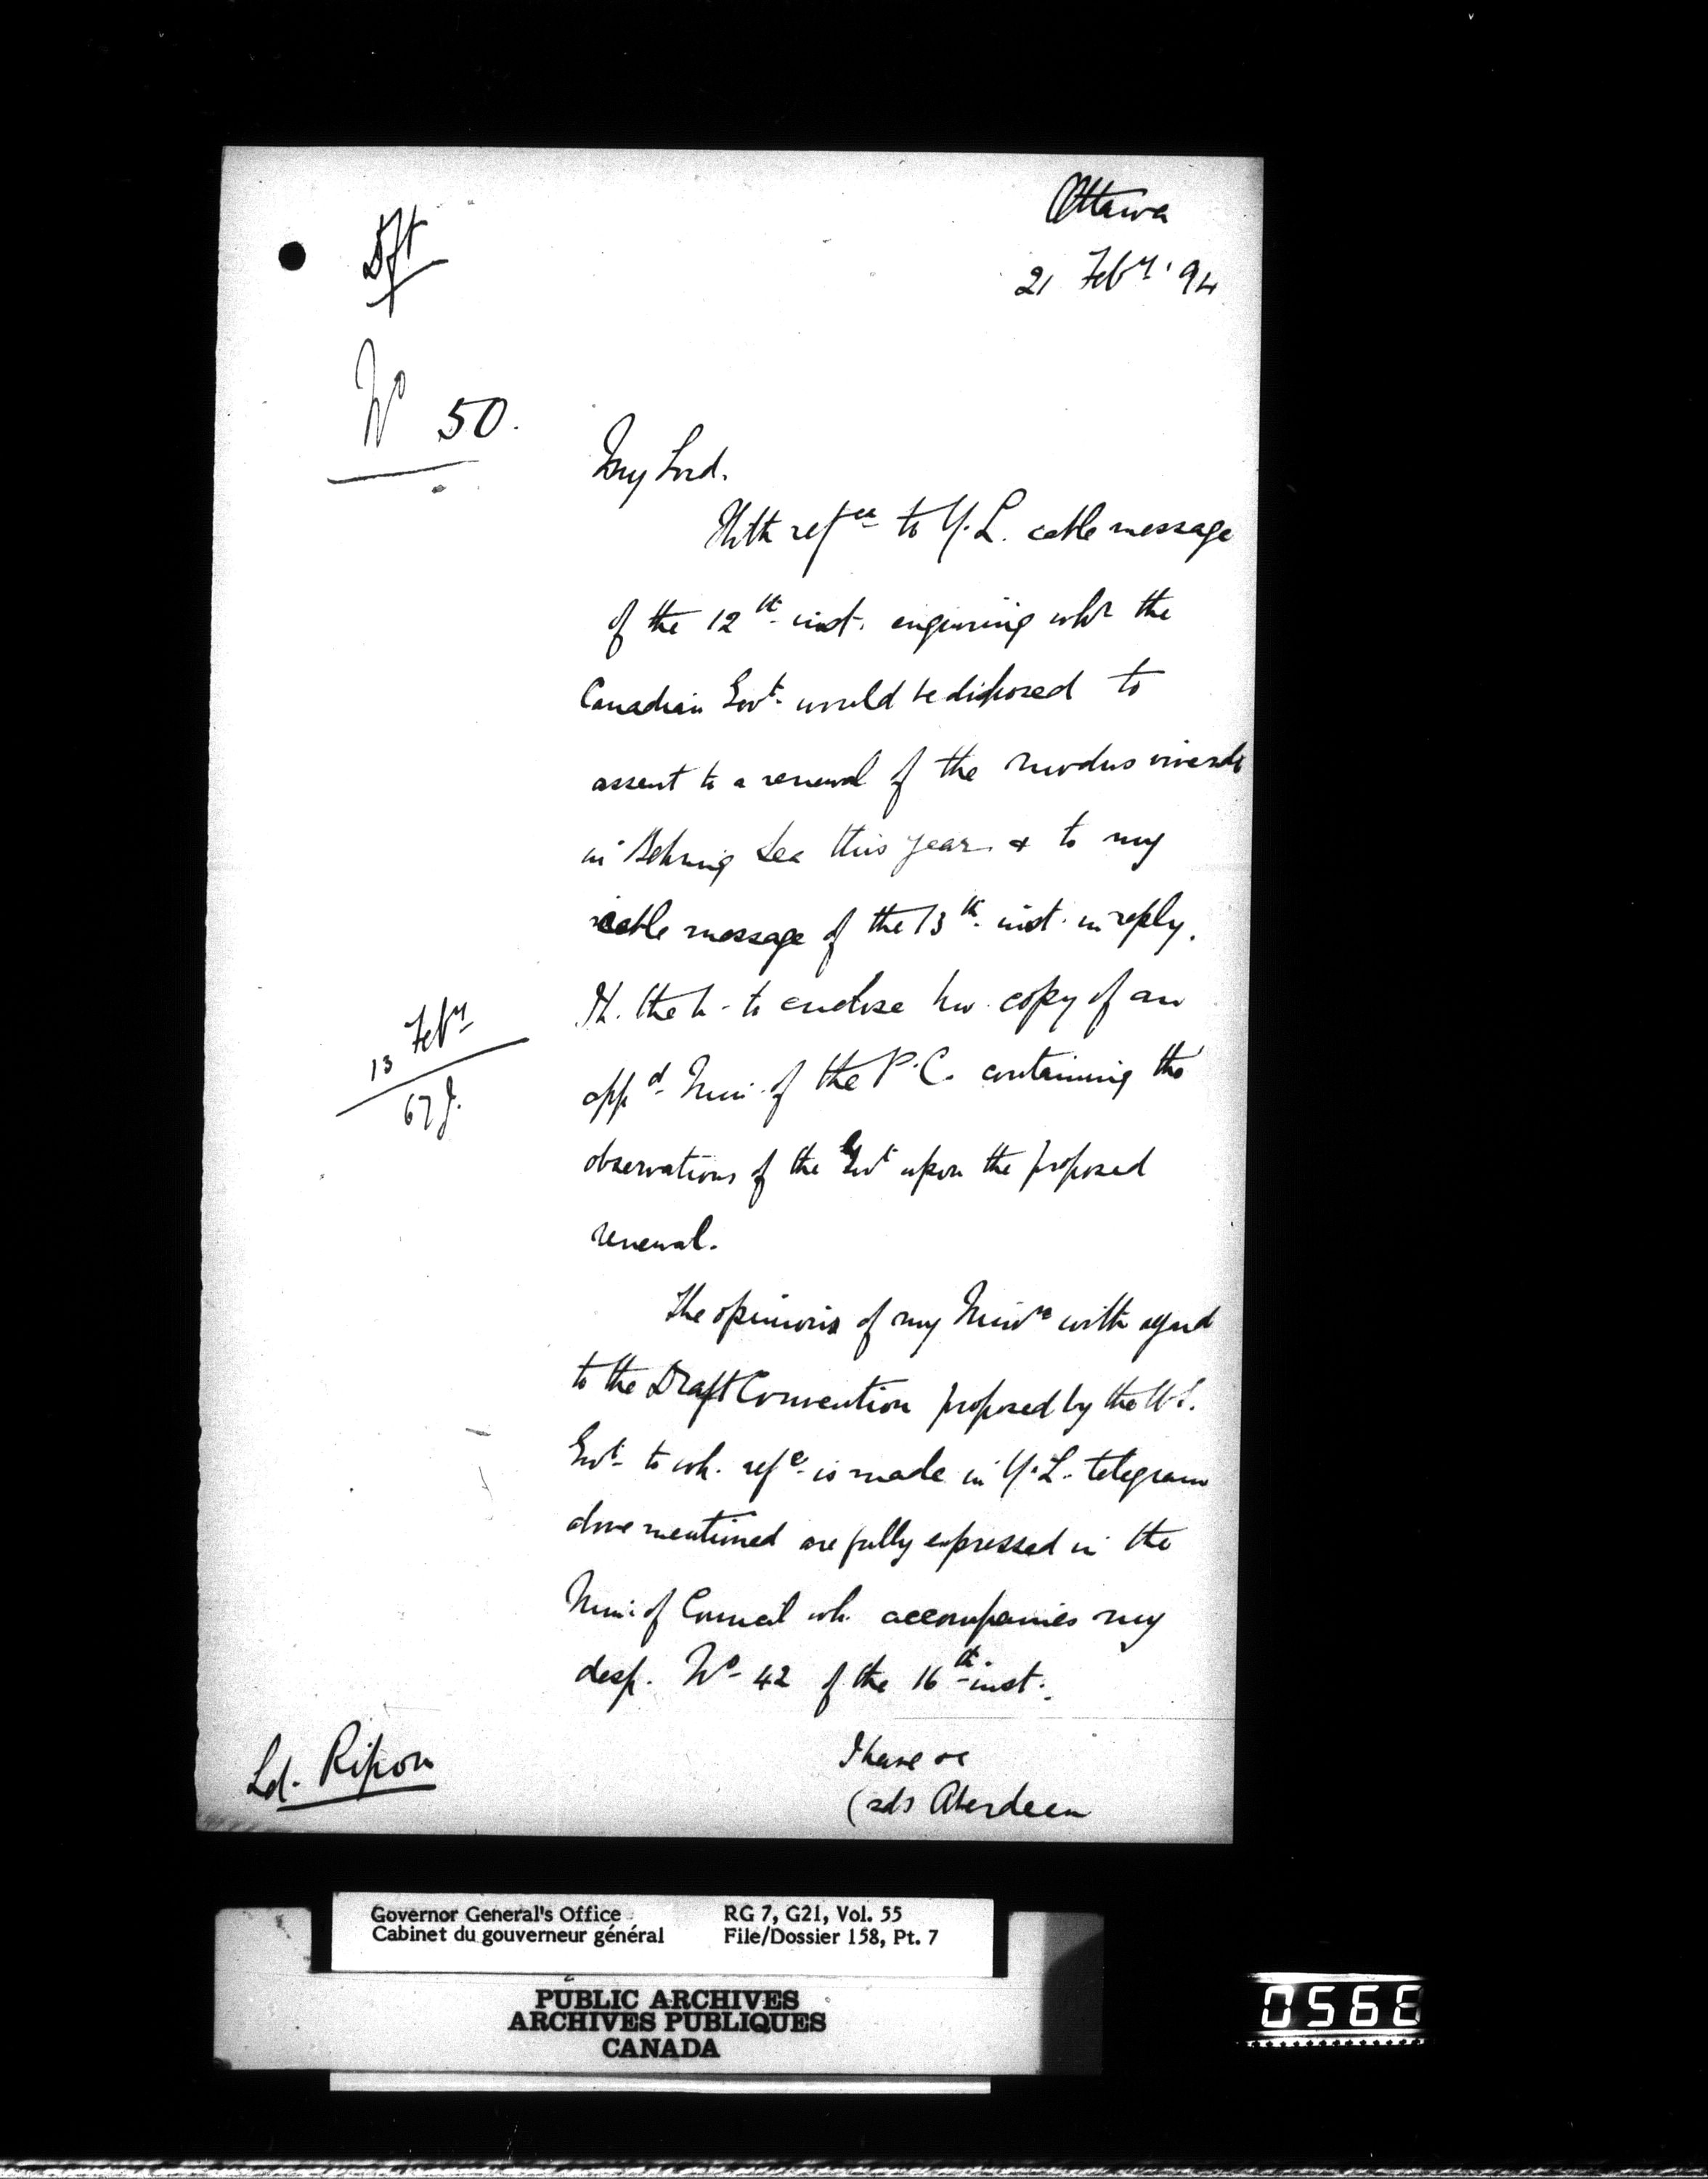 Ottawa
21 Feby '94
Dft
No 50.
My Lord.
With refce to Y.L. cable message
of the 12th inst. enquiring whr the
Canadian Govt. would be disposed to
assent to a renewal of the modus vivendi
in Behring Sea this year & to my
cable message of the 13th inst. in reply.
I h. the h. to enclose hw. copy of an
appd. Min: of the P.C. containing the
observations of the Govt upon the proposed
renewal.
13 Feby
67 J.
The opinions of my Minrs with regard
to the Draft Convention proposed by the U.S.
Govt. to wh. refe. is made in Y.L. telegram
above mentioned are fully expressed in the
Min: of Council wh. accompanies my
desp. No. 42 of the 16th inst.
I have &c
(sd) Aberdeen
Ld. Ripon
Governor General's Office RG 7, G21, Vol. 55
Cabinet du gouverneur général File/Dossier 158, Pt. 7
PUBLIC ARCHIVES
ARCHIVES PUBLIQUES
CANADA